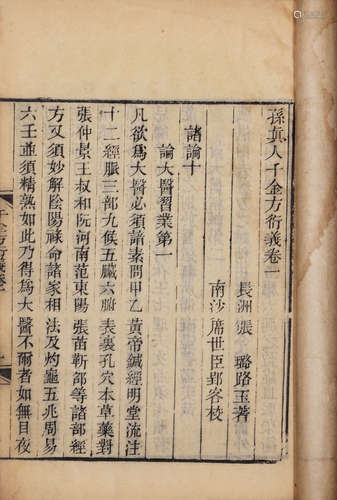 孫真人千金方衍義卷一
長洲張 璐路玉著
南沙席世臣郢客校
諸論十
論大醫習業第一
凡欲為大醫必須諳素問甲乙黃帝鍼經明堂流注
十二經脈三部九候五臟六腑表裏孔穴本草藥對
張仲景王叔和阮河南范東陽張苗靳邵等諸部經
方又須妙解陰陽祿命諸家相法及灼龜五兆周易
六壬並須精熟如此乃得為大醫不爾者如無目夜
千金方衍義卷一